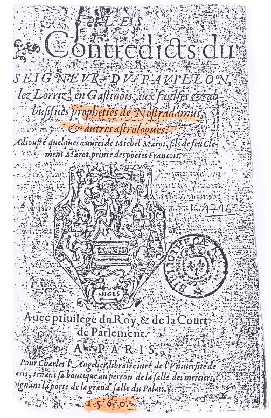 Contredicts du
SEIGNEUR DU PAVILLON,
lez Lorriz, en Gastinois, aux faulses & ab-
busifues propheties de Nostradamus,
& autres astrologues.
Adiousté quelques œuures de Michel Marot, fils de feu Cle-
ment Marot, prince des poetes François.
A PARIS,
Auec priuilege du Roy, & de la Court
de Parlement.
Pour Charles l'Angelier, libraire iuré de l'Vniuersité de
Paris, tenant sa boutique au perron de la salle des merciers,
ioignant la porte de la grand salle du Palais.
1560.